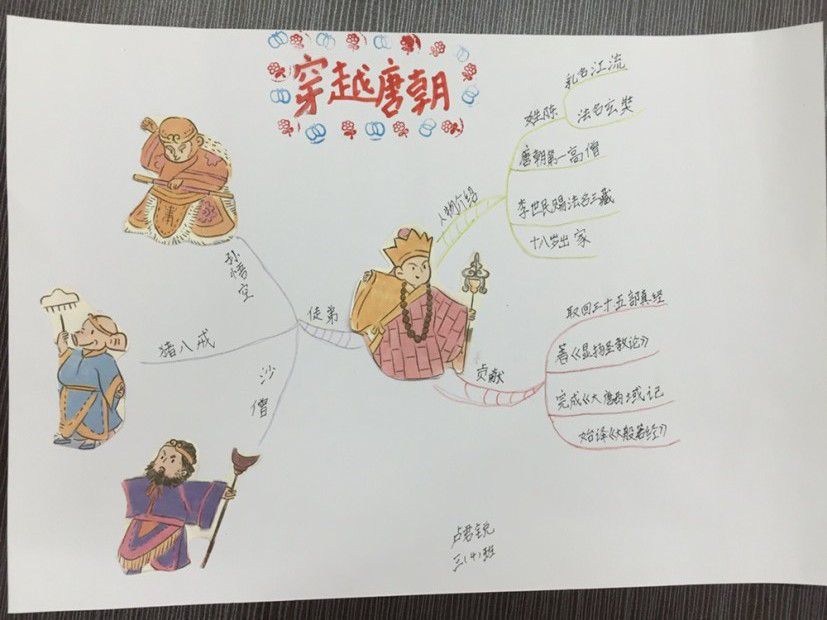 穿越唐朝
人物介绍
姓陈
乳名江流
法名玄奘
唐朝第一高僧
李世民赐法名三藏
十八岁出家
贡献
取回三十五部真经
著《显扬圣教论》
完成《大唐西域记
始译《大般若经》
徒弟
孙悟空
猪八戒
沙僧
卢君锐
三(4)班